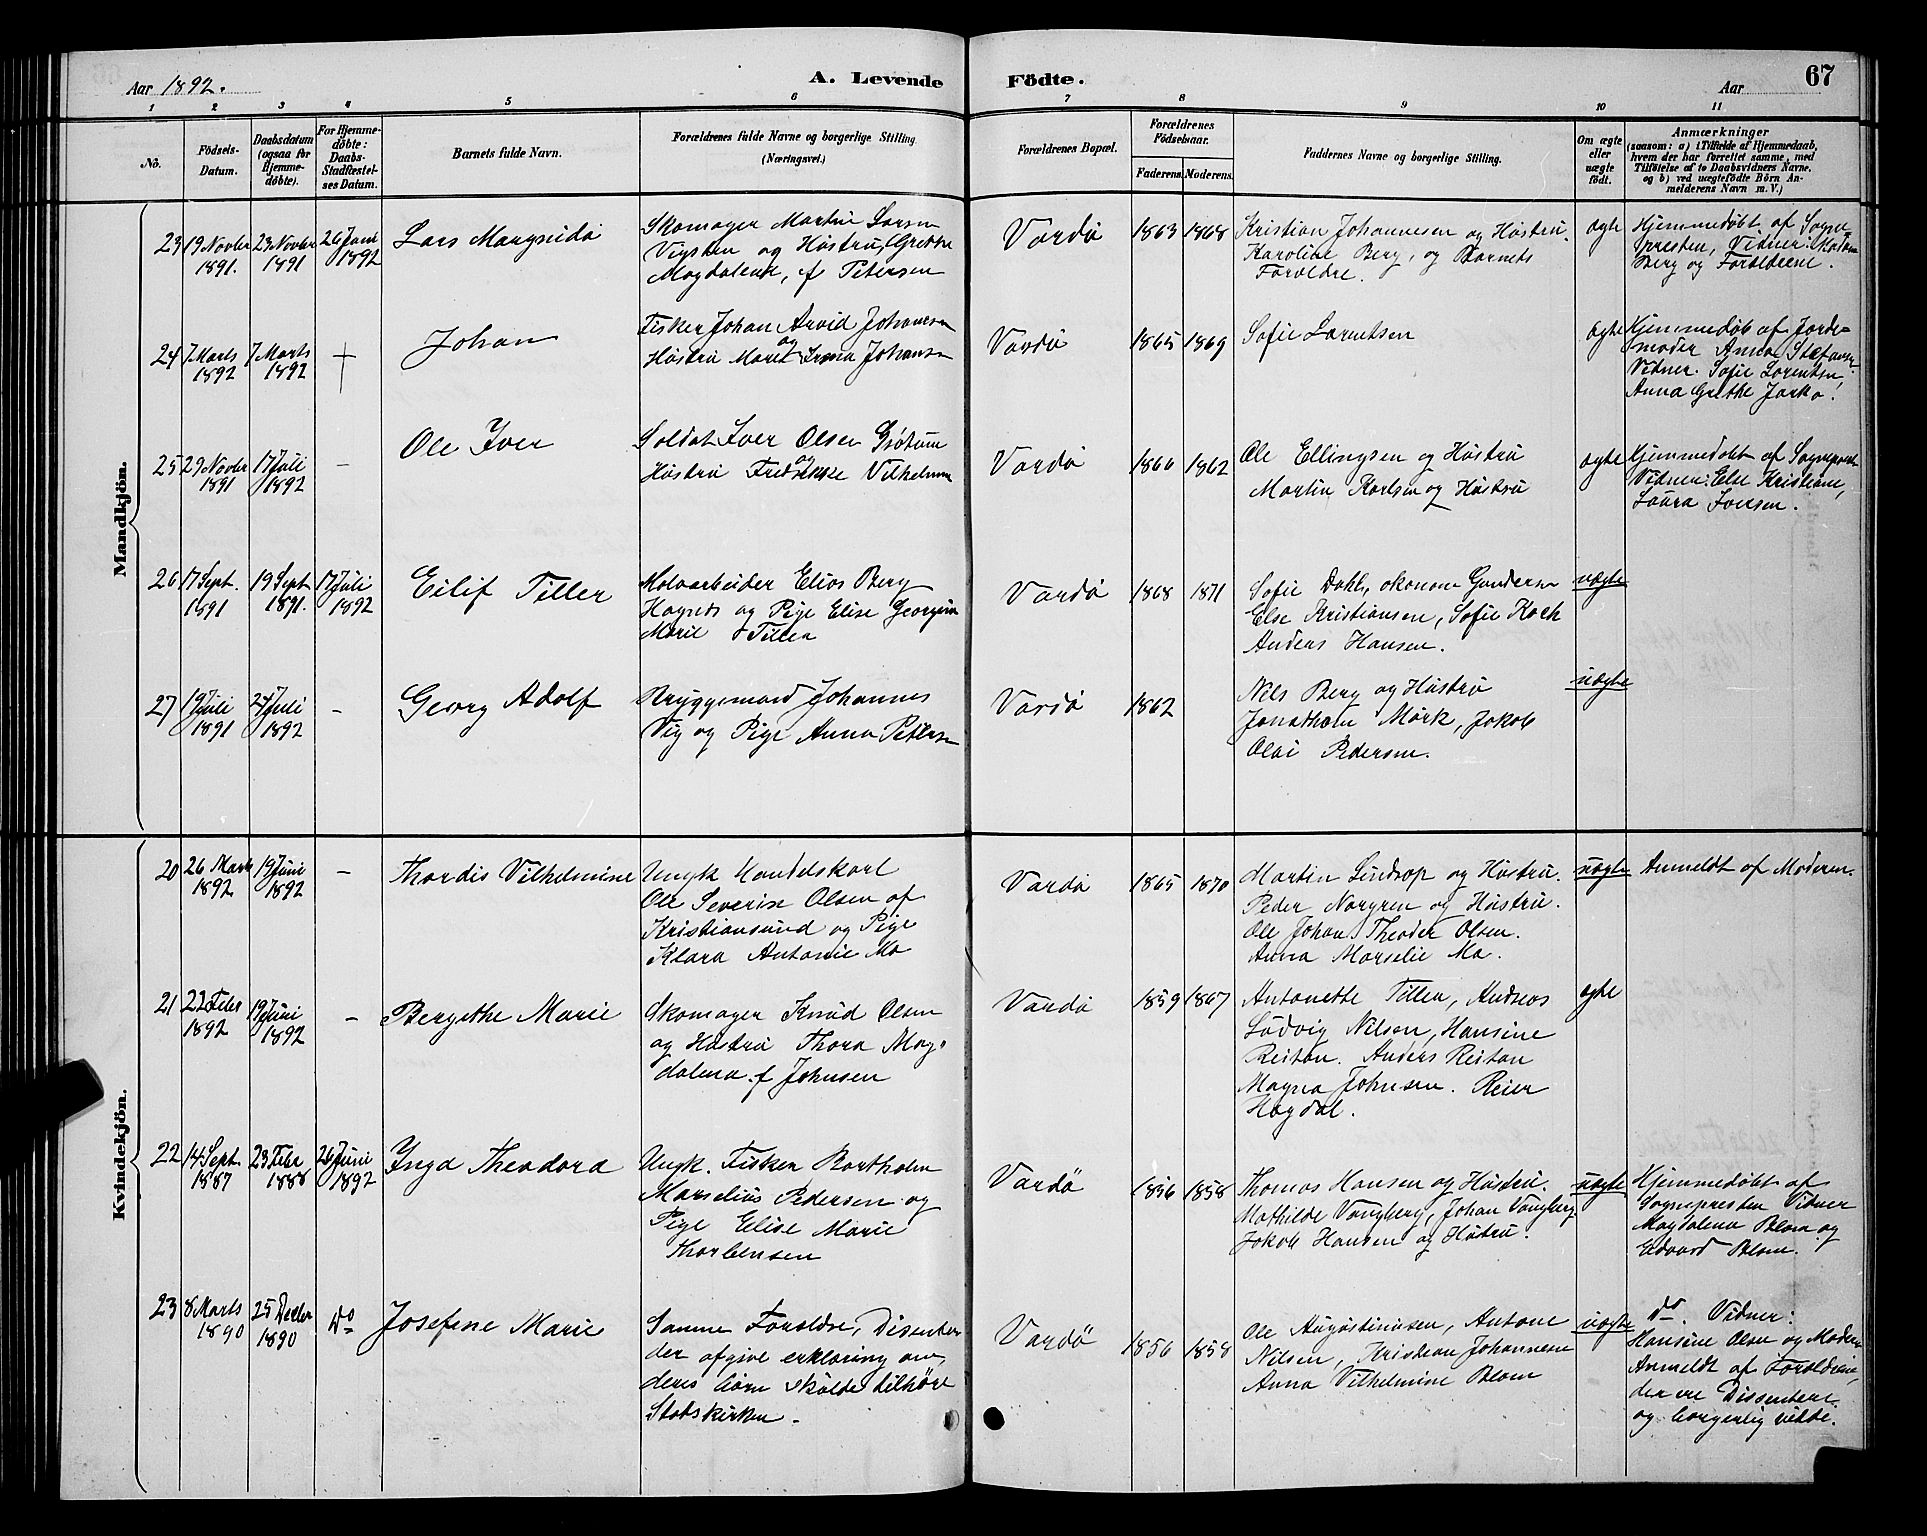 Aar 1892.
A. Levende Födte.
Aar
67
1 2 3 4 5 6 7 8 9 10 11
No.
Födsels-Datum.
Daabsdatum (ogsaa for Hjemme-døbte).
For Hjemme-døbte: Daabs-Stadfæstel-ses Datum.
Barnets fulde Navn.
Forældrenes fulde Navne og borgerlige Stilling
(Næringsvei.)
Forældrenes Bopæl.
Forældrenes Födselsaar.
Faderens. Moderens.
Faddernes Navne og borgerlige Stilling.
Om ægte eller uægte født.
Anmærkninger
(saasom: a) i Tilfælde af Hjemmedaab,
hvem der har forrettet samme, med
Tilföielse af to Daabsvidners Navne,
og b) ved uægtefödte Börn An-
melderens Navn m. V.)
Mandkjön.
23 19 Novbr 1891. 23 Novbr 1891 26 Juni 1892
Lars
Skomager Martin Larsen
Vigsten og Hustru, Grethe
Magdalena, f Petersen
Vardø 1863 1868
Kristian Johannesen og Hustru.
Karoline Berg, og Barnets
Forældre.
ægte
Hjemmedøbt af Sogne-
presten, Vidner:
Berg og Forældrene.
24 7 Marts 1892 7 Marts 1892 +
Johan
Fisker Johan Arvid Johansen
og
Hustru Maret Johansen
Vardø 1865 1869
Sofie Lorentsen
ægte
Hjemmedøb af Jorde-
moder Anna Stefansen
Vidner. Sofie Lorentsen,
Anna Grethe Jarko.
25 29 Novbr 1891 17 Juli 1892 -
Ole Iver
Soldat Iver Olsen
og
Hustru Fredrikke Vilhelmine
Vardø 1866 1862
Ole Ellingsen og Hustru
Martin Karlsen og Hustru
ægte
Hjemmedøbt af Sogneprest
Vidner: Else Kristiane,
Laura Iversen.
26 17 Sept. 1891 19 Sept 1891. 17 Juli 1892
Eilif Tiller
Moloarbeider Elias Berg
Hagnes og Pige Elise Georgine
Marie Tiller
Vardø 1868 1871
Sofie Dahl, økonom Gundersen
Else Kristiansen, Sofie Koch
Anders Hansen.
uægte
27 19 Juli 1891 24 Juli 1892 -
Georg Adolf
Bryggemand Johannes
Vig og Pige Anna Petersen
Vardø 1862
Nils Berg og Hustru
Jonathan Mørk, Jakob
Olai Pedersen.
uægte
Kvindekjön.
20 26 Marts 1892 19 Juni 1892 -
Thordis Vilhelmine
Ungk Handelskarl
Ole Severin Olsen af
Kristiansund og Pige
Klara Antonie Mo
Vardø 1865 1870
Martin Lindrop og Hustru.
Peder Norgren og Hustru.
Ole Johan Theodor Olsen.
Anna Marselie Mo.
uægte
Anmeldt af Moderen.
21 22 Febr 1892 19 Juni 1892 -
Bergithe Marie
Skomager Knud Olsen
og Hustru Thora Mag-
dalena f Johnsen
Vardø 1859 1867
Antonette Tiller, Andreas
Ludvig Nilsen, Hansine
Reitan. Anders Reitan
Magna Johnsen. Reier
Hagdal.
ægte
22 14 Sept 1887 23 Febr 1888 26 Juni 1892
Inga Theodora
Ungk. Fisker Bartholom
Marselius Pedersen og
Pige Elise Marie
Thorbensen
Vardø 1856 1858
Thomas Hansen og Hustru.
Mathilde Vangberg, Johan Vangberg
Jakob Hansen og Hustru.
uægte
Hjemmedøbt af
Sognepresten Vidner
Magdalena Blom og
Edvard Blom.
23 8 Marts 1890 25 Decbr 1890 Do
Josefine Marie
Samme Forældre, Dissenter
der afgive erklæring om,
deres børn skulde tilhøre
Statskirken.
Vardø 1856 1858
Ole Augustinusen, Antone
Nilsen, Kristian Johannesen
Anna Vilhelmine Blom
uægte
do. Vidner:
Hansine Olsen og Moderen
Anmeldt af Forældrene,
der ere Dissentere
og borgerlig viede.